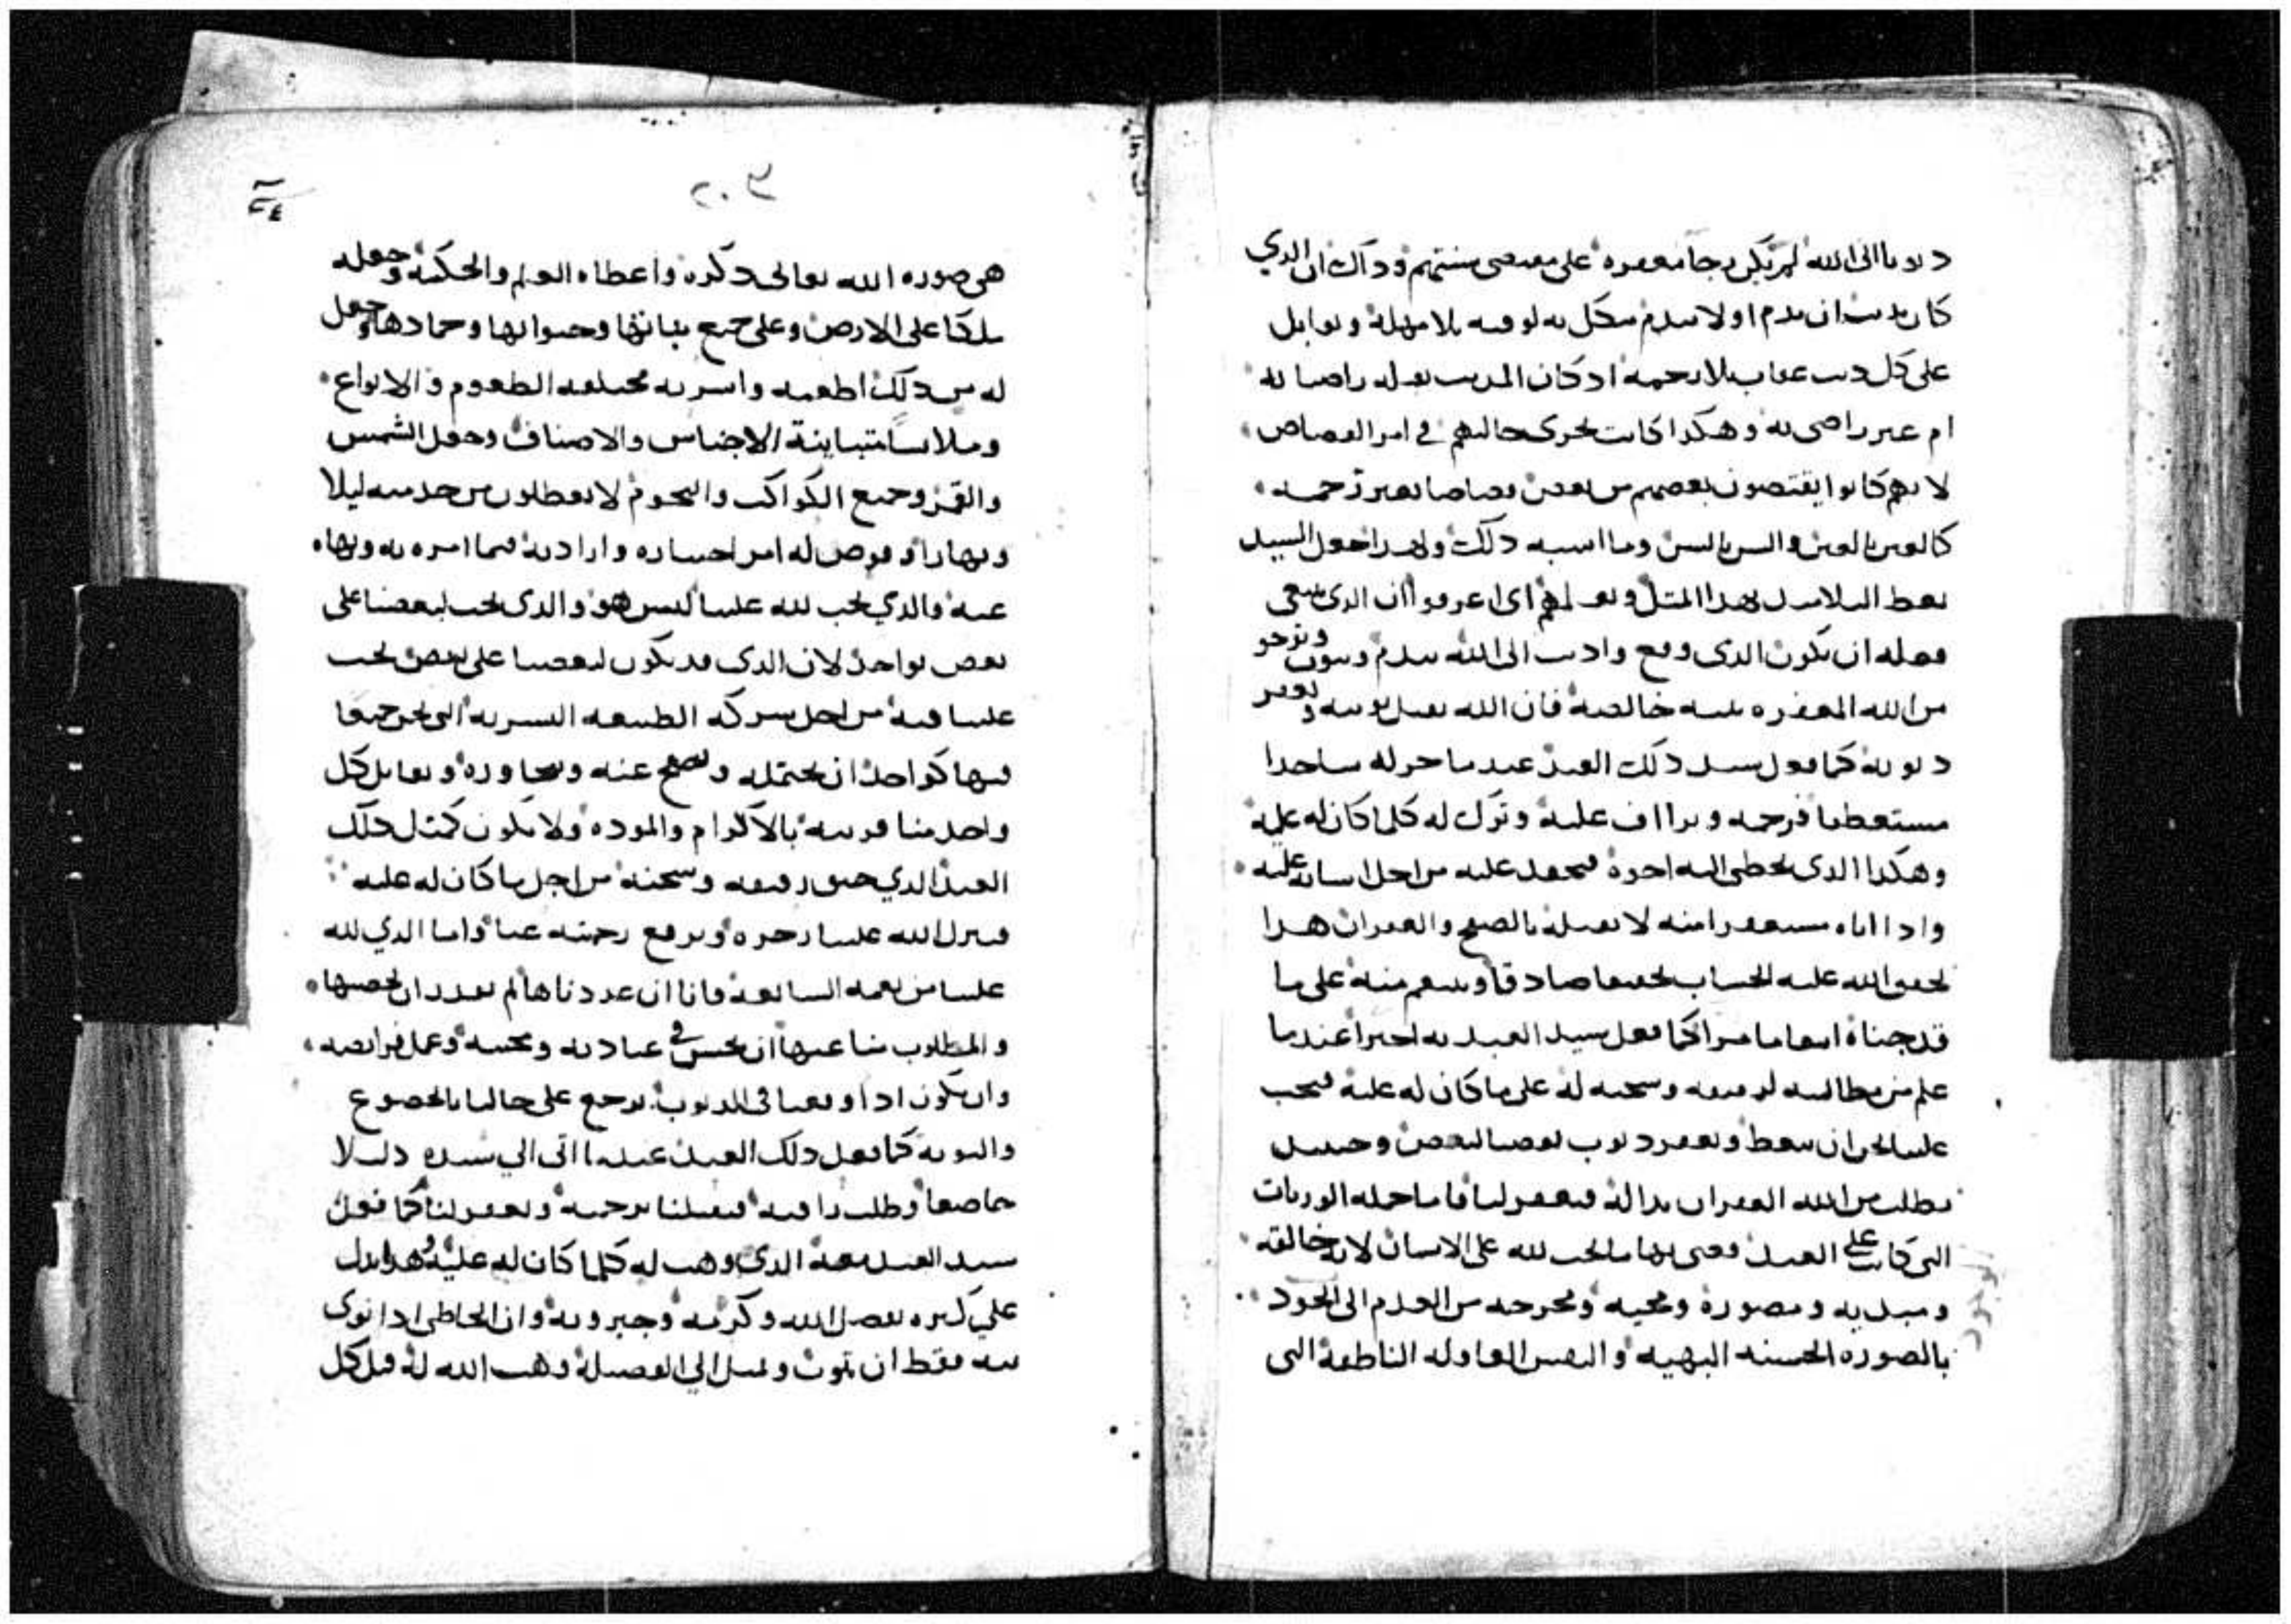 دنوبا الى الله لم يكن رجا مغفره على مقتضى سنتهم وداك ان الدي
كان يدنب ان ندم او لا يندم ينكل به لوقته بلا مهله ويقابل
على كل دنب عقاب بلا رحمه ادكان المدنب بفعله راضيا به
ام غير راضي به وهكدا كانت تجري حالتهم في امر القصاص
لانهم كانوا يقتصون بعضهم من بعض قصاصا بغير رحمه
كالعين بالعين والسن بالسن وما اشبه دلك ولهدا جعل السيد
يعظ التلاميد بهدا المثل ويعلمهم اي اعرفوا ان الدي ينبغي
فعله ان يكون الدي وقع وادنب الى الله يندم ويتوب ويرجو
من الله المغفره بنيه خالصه فان الله يقبل توبته ويغفر
دنوبه كما فعل سيد دلك العبد عندما خر له ساجدا
مستعطفا فرحمه وتراف عليه وترك له كلما كان له عليه
وهكدا الدي يخطي اليه اخوه فيحقد عليه من اجل اسانه عليه
وادا اتاه مستغفرا منه لا يقبله بالصفح والغفران هدا
يحقق الله عليه الحساب تحقيقا صادقا وينتقم منه على ما
قد جناه انتقاما مرا كما فعل سيد العبد به اخيرا عندما
علم من مطالبته لرفيقه وسجنه له على ما كان له عليه فيجب
علينا نحن ان نتعظ ونغفر دنوب بعضنا لبعض وحينيد
نطلب من الله الغفران بداله فيغفر لنا فاما جمله الوزنات
التي كانت على العبد فعنى بها ما يجب لله على الانسان لانه خالقه
ومبديه ومصوره ومحييه ومخرجه من العدم الى الجود
الوجود
بالصوره الحسنه البهيه والنفس العاقله الناطقه التي
٢٠٣
هي صوره الله تعالى دكره واعطاه العلم والحكمه وجعله
ملكا على الارض وعلى جميع نباتها وحيوانها وجمادها وجعل
له من دلك اطعمه واشربه مختلفه الطعوم والانواع
وملابسا متباينة الاجناس والاصناف وجعل الشمس
والقمر وجميع الكواكب والنجوم لا يتعطلون من خدمته ليلا
ونهارا وفوض له امر اختياره وارادته فيما امره به ونهاه
عنه فالدي يجب لله علينا ليس هو والدي يجب لبعضنا على
بعض بواحد لان الدي قد يكون لبعضنا على بعض يجب
علينا فيه من اجل شركه الطبيعه البشريه التي نحن جميعا
فيها كواحد ان نحتمله ونصفح عنه ونتجاوزه ويقابل كل
واحد منا قرينه بالاكرام والموده ولا يكون كمثل دلك
العبد الدي خنق رفيقه وسجنه من اجل ما كان له عليه
فينزل الله علينا زجره ويرفع رحمته عنا واما الدي لله
علينا من نعمه السابغه فانا ان عددناها لم نقدر ان نحصيها
والمطلوب منا عنها ان نحسن في عبادته ومحبته وعمل فرايضه
وان نكون ادا وقعنا في الدنوب نرجع على حالنا بالخضوع
والتوبه كما فعل دلك العبد عندما اتى الي سيده دليلا
خاضعا وطلب رافته فيقبلنا برحمته ويغفر لنا كما فعل
سيد العبد معه الدي وهب له كلما كان له عليه وهدا يدل
علي كثره تفضل الله وكرمه وجبروته وان الخاطي ادا نوى
نيه فقط ان يتوب ويميل الي الفضيله وهب الله له قبل كل